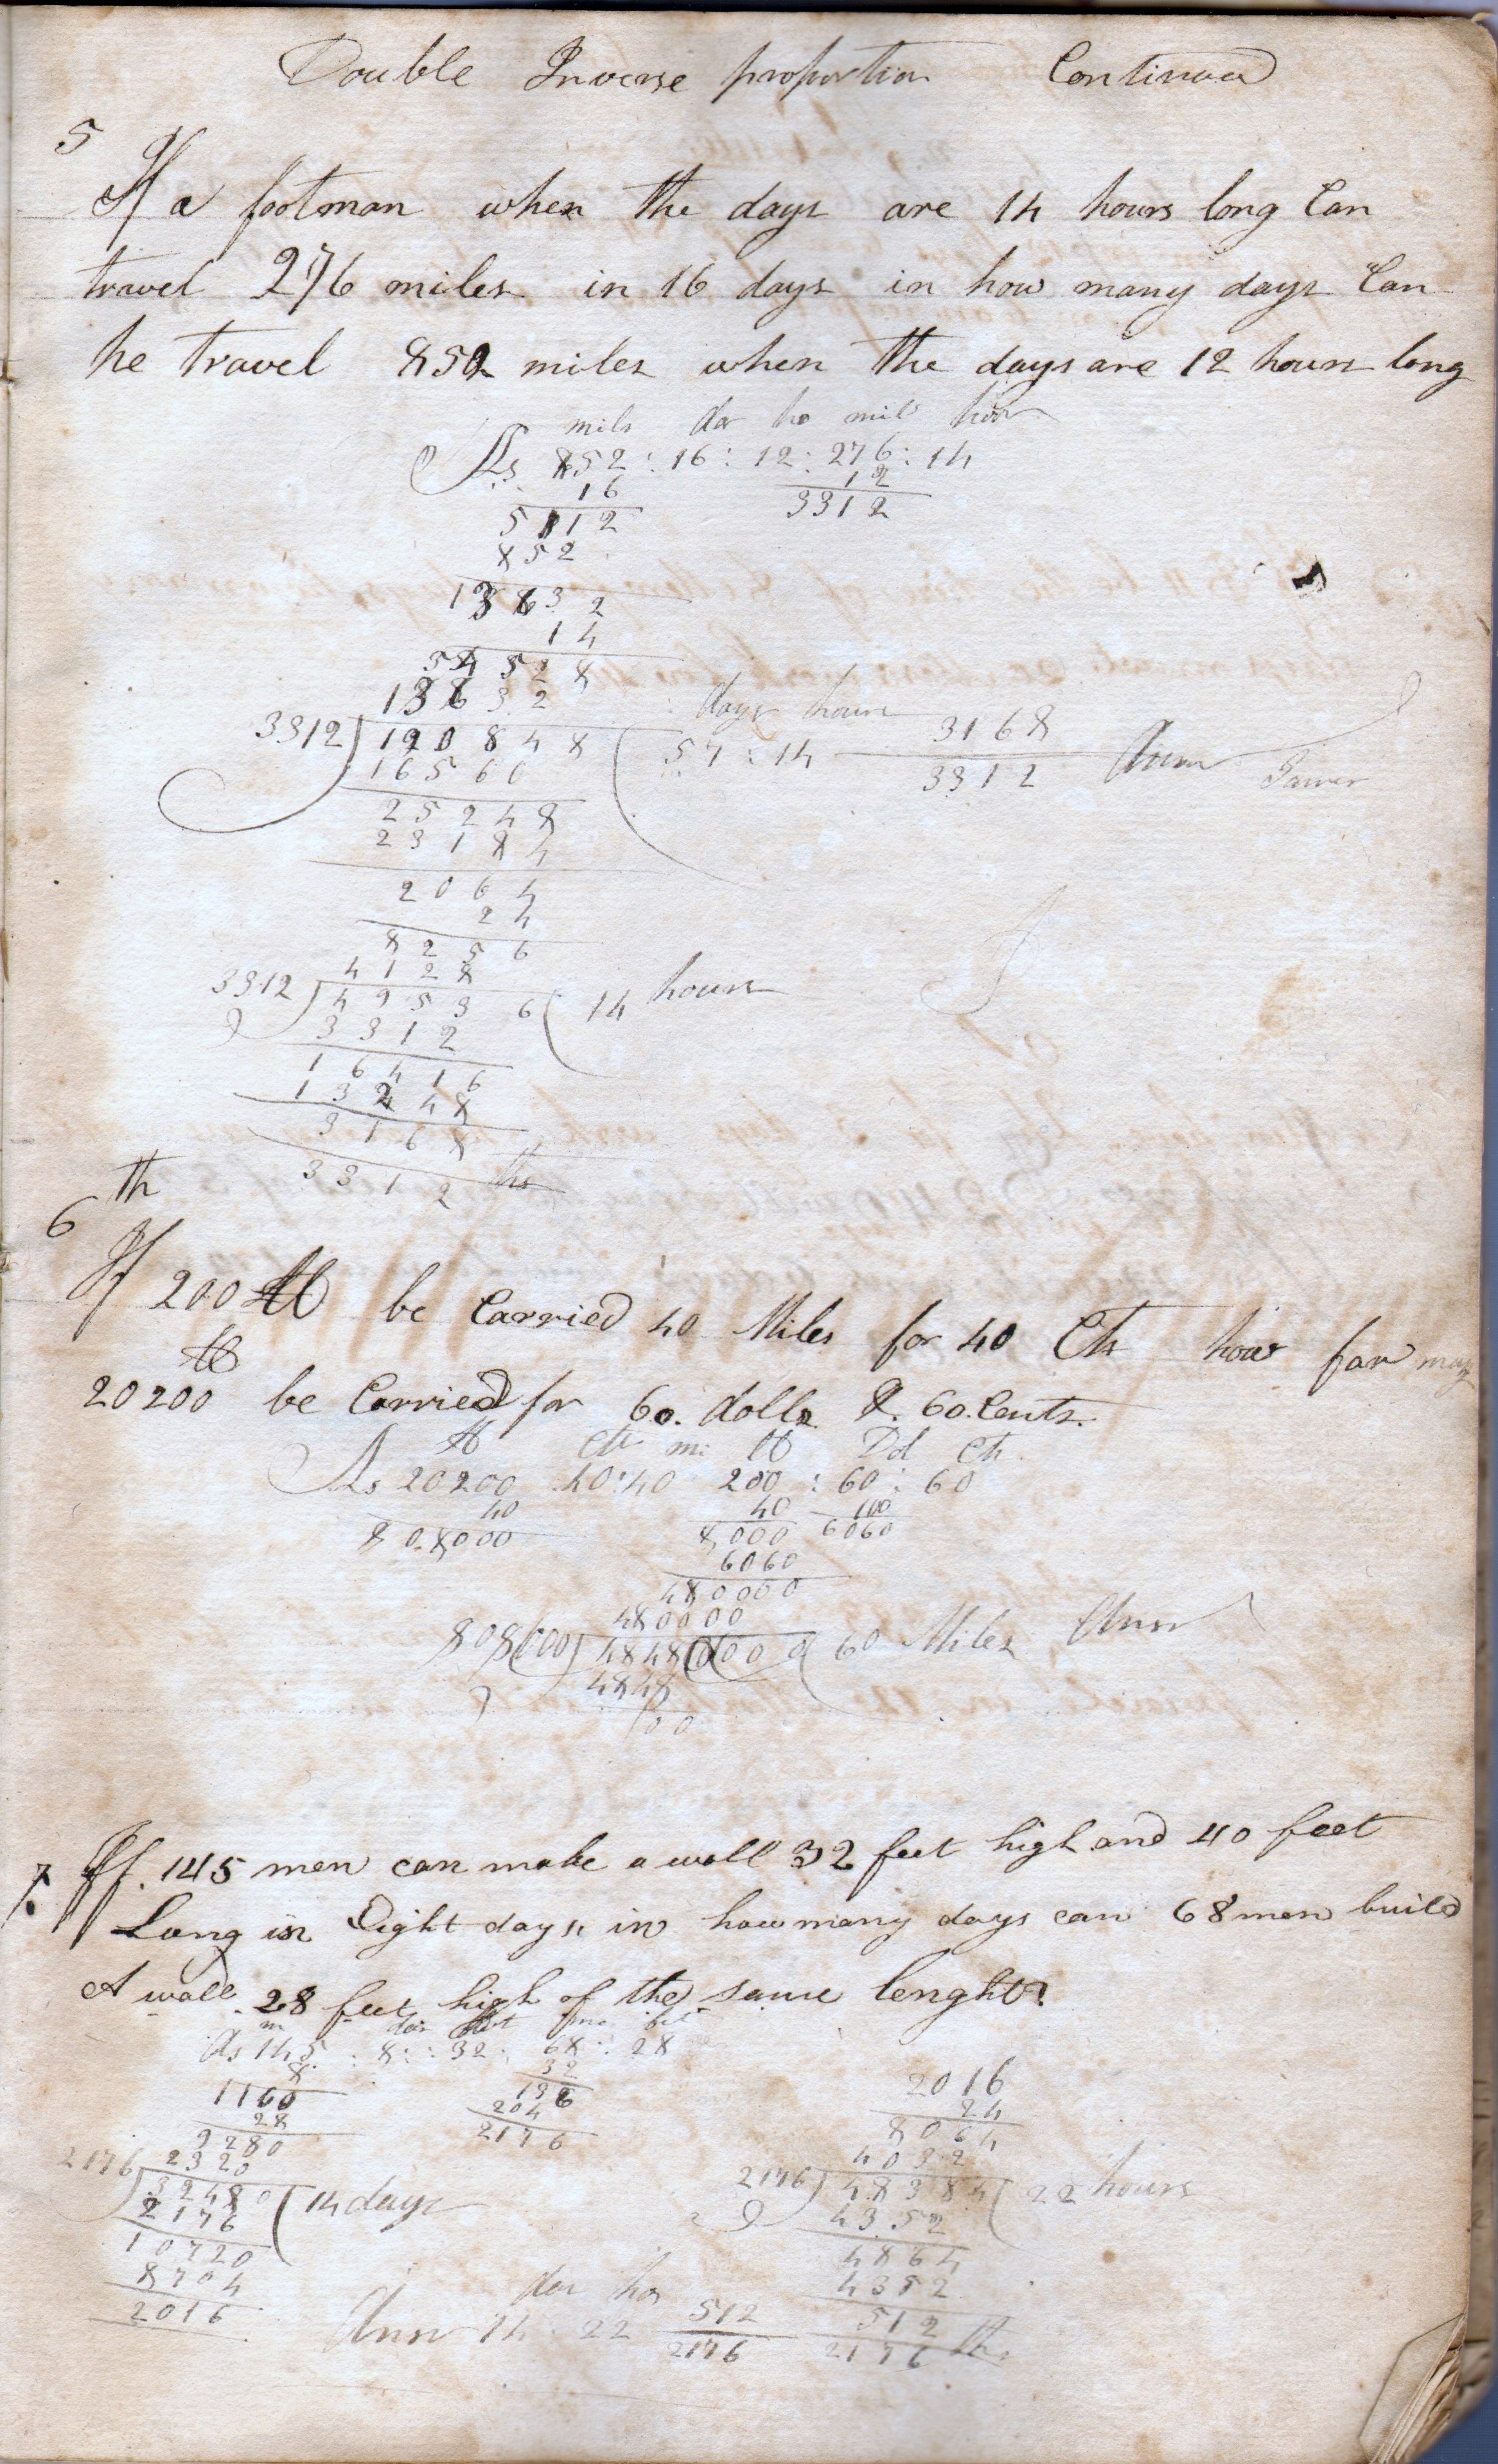 Double Inverse proportion Continued
5
If a footman when the days are 14 hours long Can
travel 276 miles in 16 days in how many days Can
he travel 852 miles when the days are 12 hours long
mils da ho mils hou
As 852 : 16 : 12 : 276 : 14
16 12
5112 3312
852
13632
14
54528
13632 days hours
3312) 190848 ( 57 : 14 3168/3312 Answ
16560
25248
23184
2064
24
8256
4128
3312) 49536 ( 14 hours
3312
16416
13248
3168
3312 ths
6th
If 200 lb be Carried 40 Miles for 40 Cts how far may
lb
20200 be Carried for 60. dolls & 60. Cents.
lb cts mi lb Dol cts
As 20200 40:40 200 : 60 : 60
40 40 100
808000 8,000 6060
6060
480000
480000
808000) 48480000 ( 60 Miles Answ
4848
00
7. If. 145 men can make a wall 32 feet high and 40 feet
Long in Eight days in how many days can 68 men build
A wall 28 feet high of the same lenght?
m das feet me feet
As 145 : 8 : : 32 : 68 : 28
8 32
1160 136
28 204
9280 2176
2320
2176) 32480 ( 14 days
2176
10720
8704
2016
2016
24
8064
4032
2176) 48384 ( 22 hours
4352
4864
4352
512
2176 ths
da hos
Answ 14 : 22 512/2176